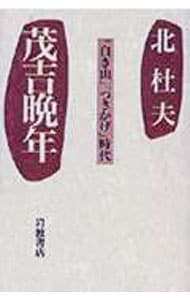 北杜夫
「白き山」「つきかげ」時代
茂吉晩年
岩波書店